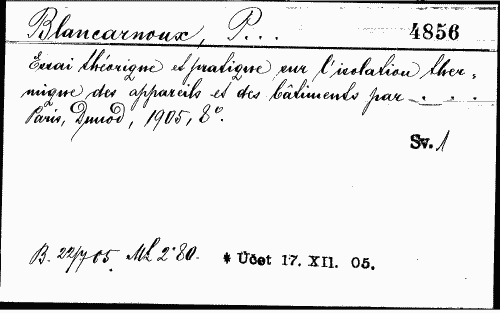 Blancarnoux, P... 4856
Essai théorique et pratique sur l'isolation ther-
mique des appareils et des bâtiments par . . .
Paris, Dunod, 1905, 8°.
Sv. 1
B. 22/7 05. Mk 2·80. * Účet 17. XII. 05.